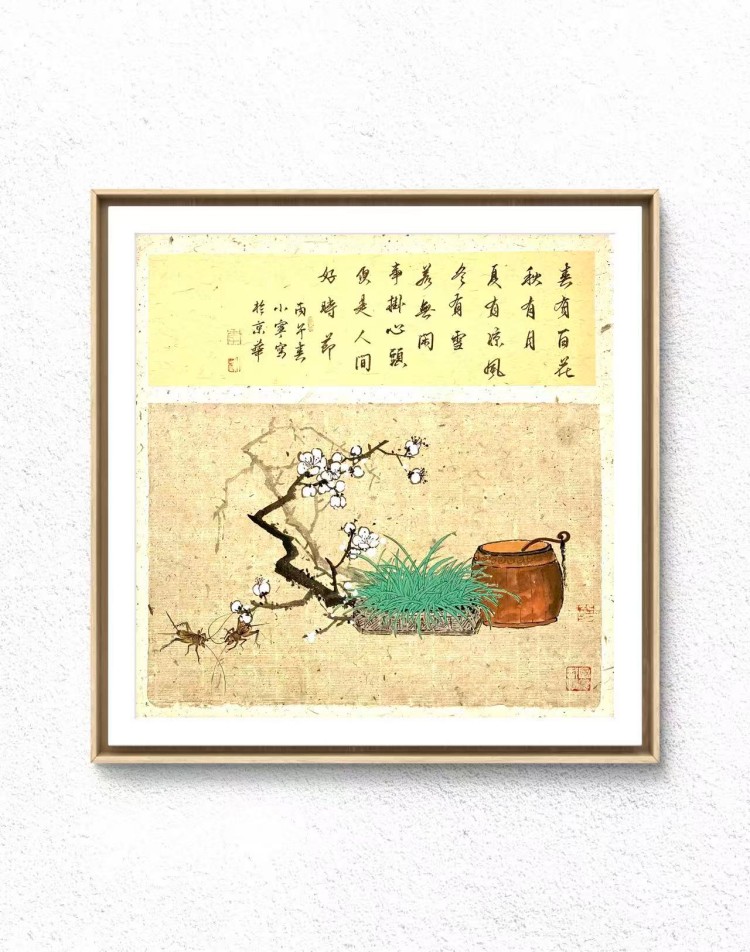 春有百花
秋有月
夏有涼風
冬有雪
若無閑
事掛心頭
便是人間
好時節
丙午春
小寧寫
於京華